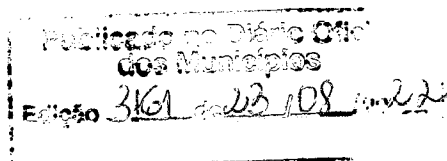 Publicado no Diário Ofici
dos Municípios
Edição 3161 de 23 / 08 / 22